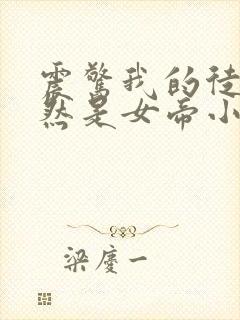 震驚我的徒
然是女帝小
梁慶一